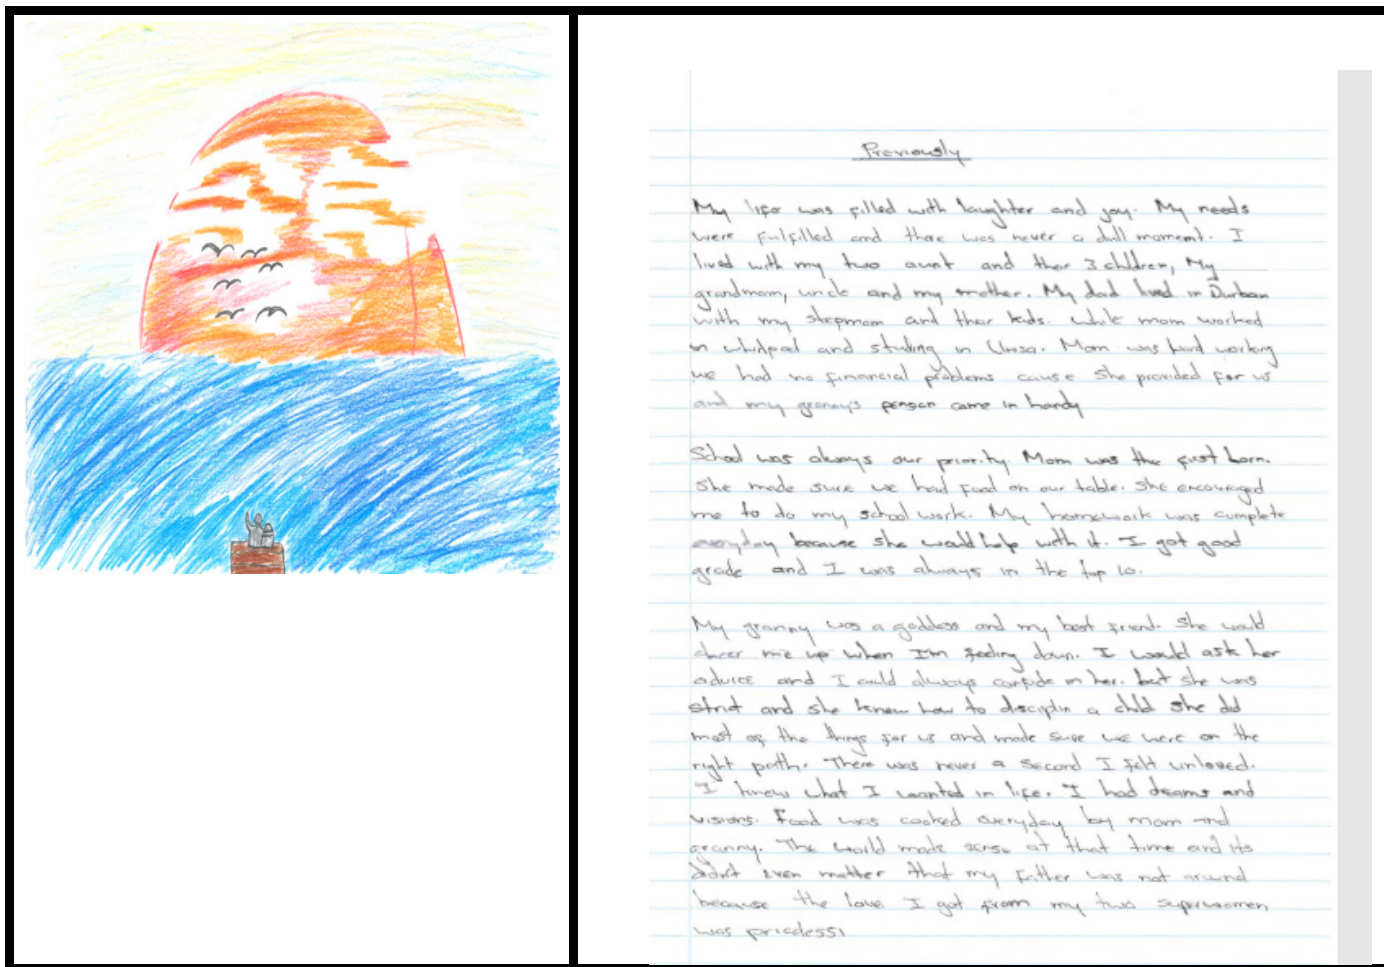 Previously
My life was filled with laughter and joy. My needs
were fulfilled and there was never a dull moment. I
lived with my two aunt and ther 3 children, My
grandmom, uncle and my mother. My dad lived in Durban
with my stepmom and their kids. While mom worked
in whilpool and studing in Unisa. Mom was hard working
we had no financial problems cause she provided for us
and my granny's pension came in handy
School was always our priority. Mom was the first born.
She made sure we had food on our table. She encouraged
me to do my school work. My homework was complete
everyday because she would help with it. I got good
grade and I was always in the top 10.
My granny was a goddess and my best friend. She would
cheer me up when I'm feeling down. I would ask her
advice and I could always confide in her. but she was
strict and she knew how to disciplin a child she did
most of the things for us and made sure we were on the
right path. There was never a second I felt unloved.
I knew what I wanted in life. I had dreams and
visions. Food was cooked everyday by mom and
granny. The world made sense at that time and its
didn't even matter that my father was not around
because the love I got from my two superwomen
was priceless!